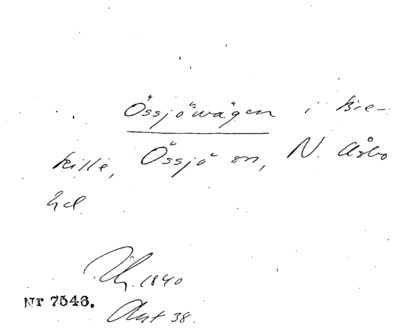 Össjövägen i Bie-
kille, Össjö sn, N. Åsbo
hd.
1840
Nr 7543.
Ant 38.